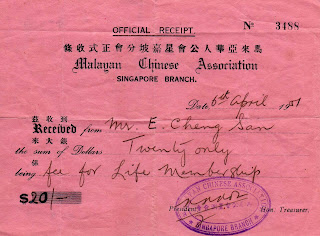 OFFICIAL RECEIPT.
Nº 3488
條收式正會分坡嘉星會公人華亞來馬
Malayan Chinese Association
SINGAPORE BRANCH.
Date 6th April 1951
茲收到
Received from Mr. E. Cheng San
大來銀
the sum of Dollars Twenty only
係
being fee for Life Membership
S20/-
President Hon. Treasurer.
MALAYAN CHINESE ASSOCIATION
SINGAPORE BRANCH